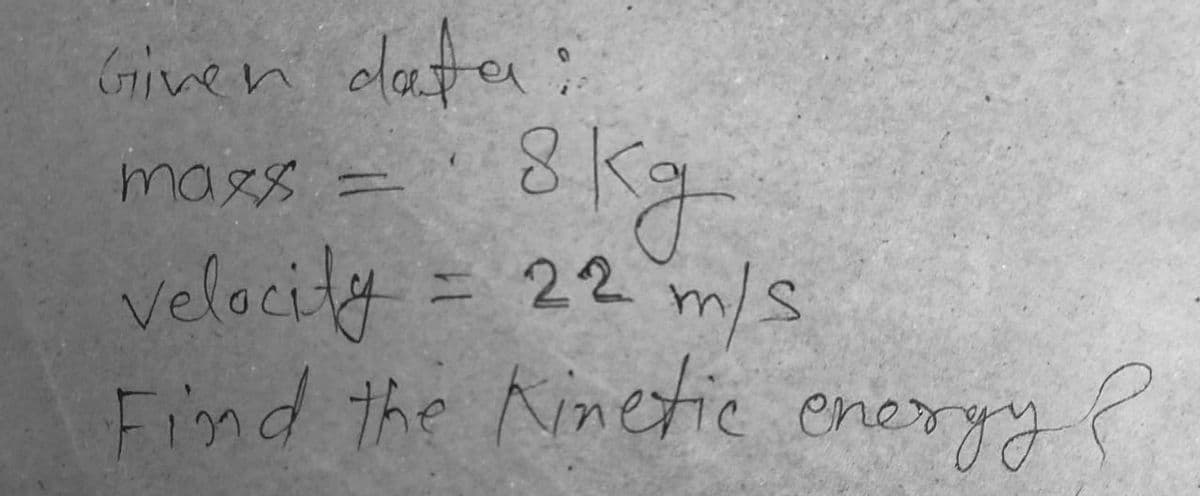 Given data:
mass = 8 Kg
velocity = 22 m/s
Find the Kinetic energy?